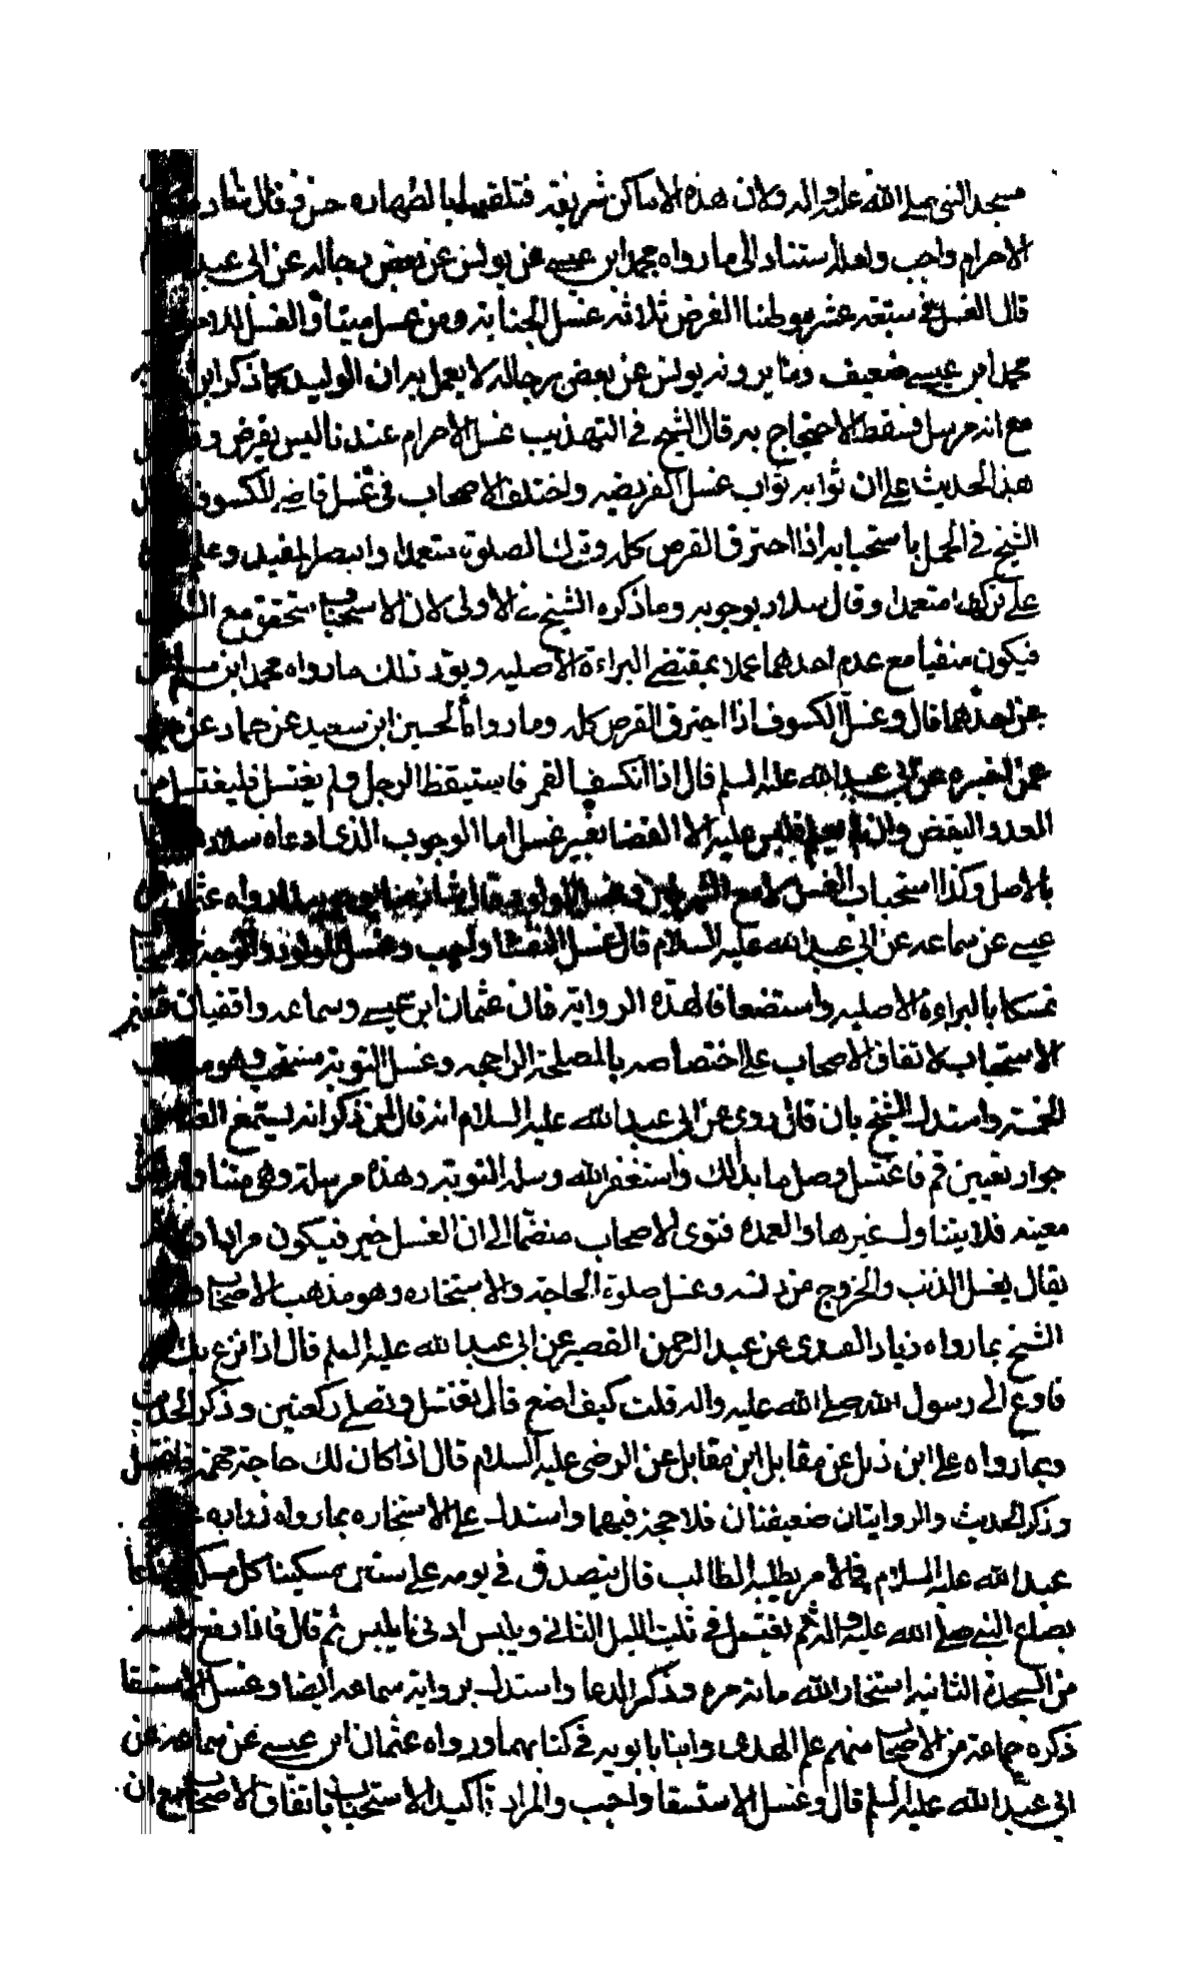 مسجد النبى صلى الله عليه واله ولان هذه الاماكن شريفة فتلقيها بالطهارة حسن وقال
الاحرام واجب ولعله استناد الى ما رواه محمد ابن عيسى عن يونس عن بعض رجاله عن ابى عبد
قال الغسل فى سبعة عشر موطنا الفرض ثلاثة غسل الجنابة ومن غسل ميتا والغسل للاحرام
محمد ابن عيسى ضعيف وما يرويه يونس عن بعض رجاله لا يعمل به ابن الوليد كما ذكر ابن
مع انه مرسل فسقط الاحتجاج به قال الشيخ فى التهذيب غسل الاحرام عندنا ليس بفرض
هذا الحديث على ان ثوابه ثواب غسل الفريضه واختلف الاصحاب فى غسل قاضى الكسوف
الشيخ فى الجمل باستحبابه اذا احترق القرص كله وترك الصلوة متعمدا واقتصر المفيد وعلم
على تركها متعمدا وقال سلار بوجوبه وما ذكره الشيخ الاولى لان الاستحباب يتحقق مع
فيكون منفيا مع عدم احدهما عملا بمقتضى البراءة الاصليه ويؤيد ذلك ما رواه محمد ابن مسلم عن
عن احدهما قال وغسل الكسوف اذا احترق القرص كله وما رواه الحسين ابن سعيد عن حماد عن
عمن اخبره عن ابى عبد الله عليه السلم قال اذا انكسف القمر فاستيقظ الرجل ولم يغتسل فليغتسل من
فليس عليه الا القضا بغير غسل اما الوجوب الذى ادعاه سلار
بالاصل وكذا استحباب الغسل وغسل المولود رواه عثمان
عيسى عن سماعه عن ابى عبد الله عليه السلام قال غسل النفسا واجب وغسل المولود والوجه الاستحباب
تمسكا بالبراءة الاصليه واستضعافا لهذه الرواية فان عثمان ابن عيسى وسماعه واقفيان
الاستحباب لاتفاق الاصحاب على اختصاصه بالمصلحة الراجحه وغسل التوبة مستحب وهو
الخمسة واستدل الشيخ بان قال روى عن ابى عبد الله عليه السلام انه قال لمن ذكر انه يستمع
جوار يغنين قم فاغتسل وصل ما بدا لك واستغفر الله وسله التوبة وهذه مرسلة وهى متناولة
معينه فلا يتناول غيرها والعمدة فتوى الاصحاب منضما الى ان الغسل خير فيكون مرادا
يقال بغسل الذنب والخروج من دنسه وغسل صلوة الحاجة والاستخاره وهو مذهب الاصحاب
الشيخ بما رواه زياد القندى عن عبد الرحمن القصير عن ابى عبد الله عليه السلم قال اذا نزع بك
فاوع الى رسول الله صلى الله عليه واله قلت كيف اضع قال تغتسل وتصلى ركعتين وذكر الحديث
وبما رواه على ابن ذيل عن مقاتل ابن مقاتل عن الرضى عليه السلام قال اذا كان لك حاجة مهمة فاغتسل
وذكر الحديث والروايتان ضعيفتان فلا حجة فيهما واستدل على الاستخاره بما رواه زراره
عبد الله عليه السلام فى الامر يطلبه الطالب قال يتصدق فى يومه على ستين مسكينا كل مسكين صاعا
بصاع النبى صلى الله عليه واله ثم يغتسل فى ثلث الليل الثانى ويلبس ادنى ما يلبس ثم قال فاذا رفع راسه
من السجدة الثانيه استخار الله مائة مره وذكر الدعا واستدل برواية سماعه ايضا وغسل الاستسقا
ذكره جماعة من الاصحاب منهم علم الهدى وابنا بابويه فى كتابهما ورواه عثمان ابن عيسى عن سماعه عن
ابى عبد الله عليه السلم قال وغسل الاستسقا واجب والمراد تاكيد الاستحباب باتفاق الاصحاب مع ان